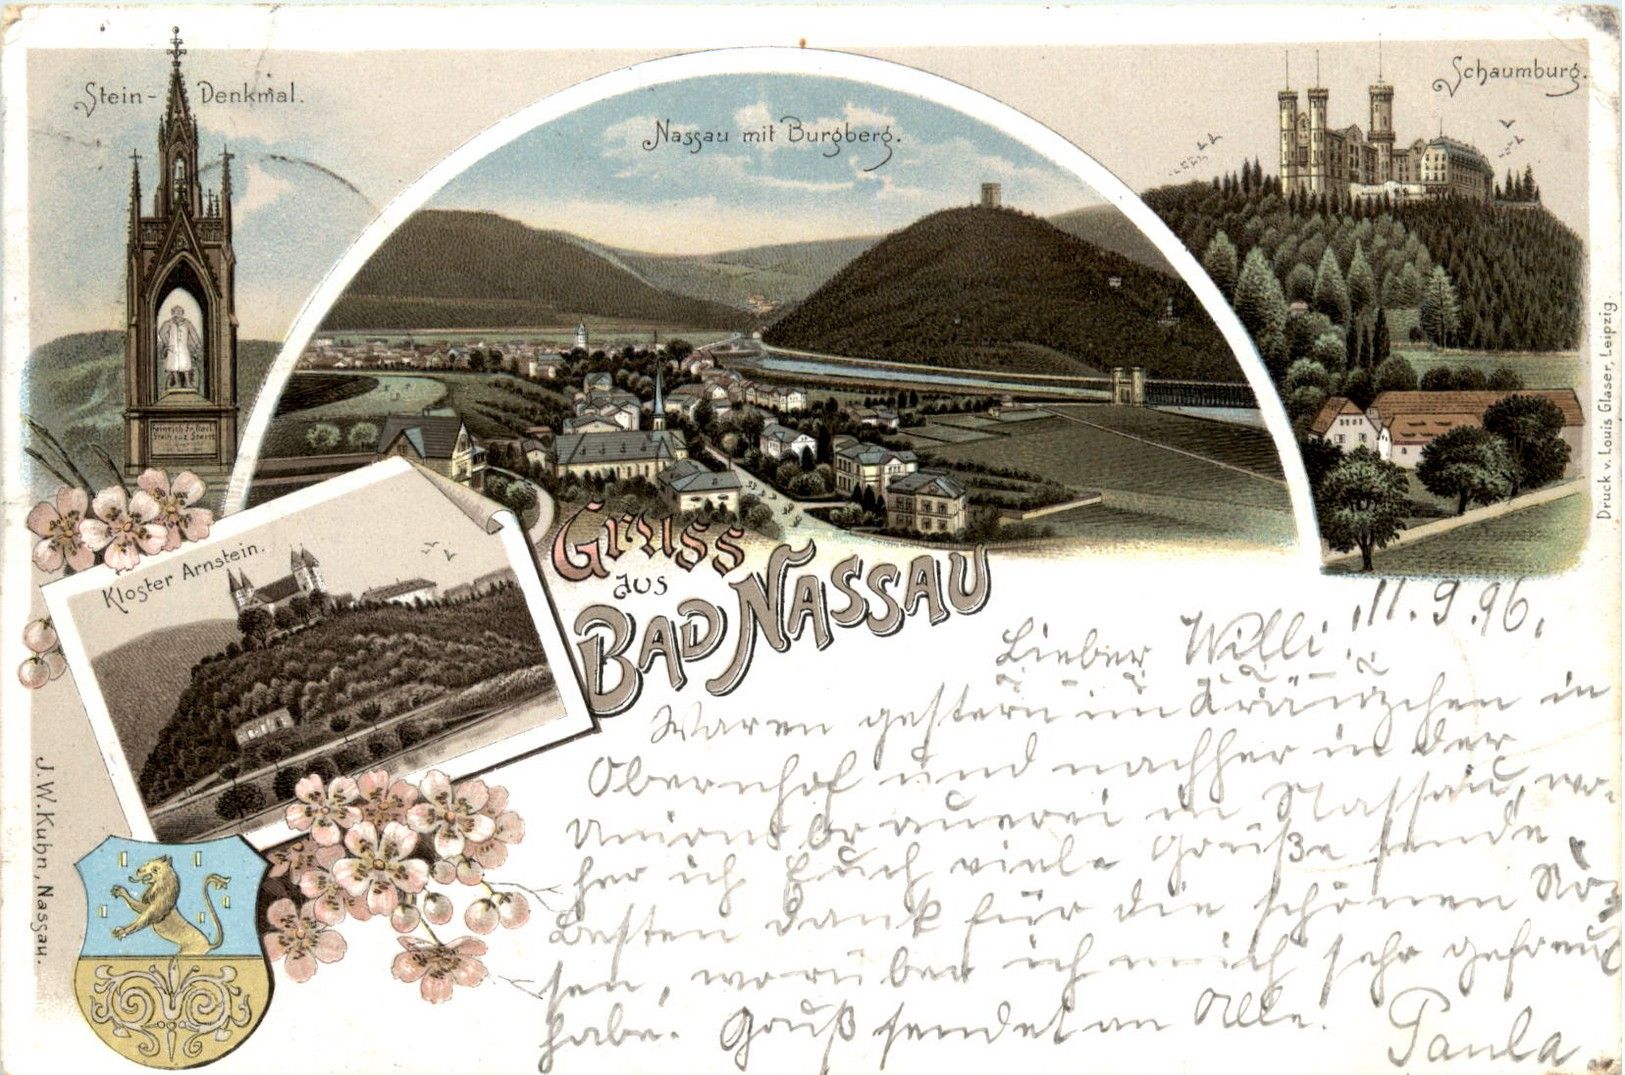 Stein-Denkmal.
Nassau mit Burgberg.
Schaumburg.
Heinrich Fr. Karl
Stein z. Stein
Kloster Arnstein.
Gruss
aus
BAD NASSAU
Druck v. Louis Glaser, Leipzig
J. W. Kuhn, Nassau.
11.9.96.
Lieber Willi!
Waren gestern im Kränzchen in
Obernhof und nachher in der
Unionsbrauerei in Nassau, wo-
her ich Euch viele Grüße sende.
Besten Dank für die schönen Ro-
sen, worüber ich mich sehr gefreut
habe. Gruß sendet an Alle.
Paula.